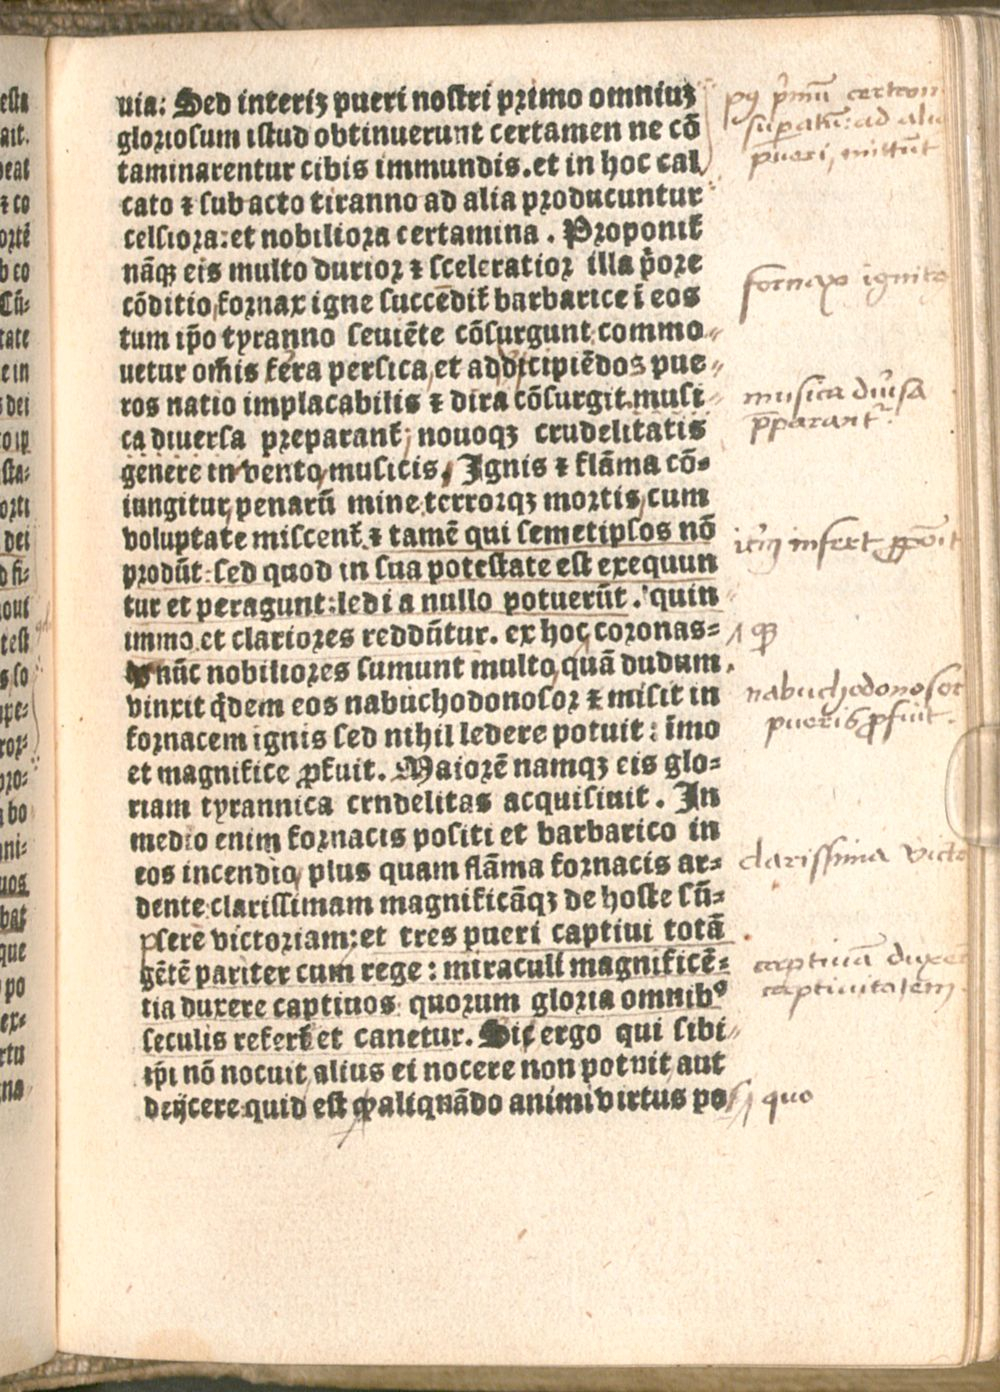 uia: Sed interiꝫ pueri nostri primo omniuꝫ
gloriosum istud obtinuerunt certamen ne cō
taminarentur cibis immundis. et in hoc cal
cato ⁊ subacto tiranno ad alia producuntur
celsiora: et nobiliora certamina. Proponit̄
nāqꝫ eis multo durior ⁊ sceleratior illa p̄ore
cōditio, fornax igne succedit̄ barbarice ī eos
tum ip̄o tyranno seuiēte cōsurgunt commo
uetur om̄is fera persica, et ad dicipiēdos pue
ros natio implacabilis ⁊ dira cōsurgit. musi
ca diuersa preparant̄, nouoqꝫ crudelitatis
genere inuento musicis, Ignis ⁊ flāma cō-
iungitur, penarū mine terrorqꝫ mortis, cum
voluptate miscent̄. ⁊ tamē qui semetipsos nō
produ̅t: sed quod in sua potestate est exequun
tur et peragunt: ledi a nullo potuerūt. quin
immo et clariores reddūtur. ex hoc coronas=
nūc nobiliores sumunt multo, quā dudum.
vinxit q̄dem eos nabuchodonosor ⁊ misit in
fornacem ignis sed nihil ledere potuit: īmo
et magnifice ꝓfuit. Maiorē namqꝫ eis glo=
riam tyrannica crndelitas acquisiuit. In
medio enim fornacis positi et barbarico in
eos incendio, plus quam flāma fornacis ar=
dente clarissimam magnificāqꝫ de hoste sū=
psere victoriam: et tres pueri captiui totā
gētē pariter cum rege: miraculi magnificē=
tia duxere captiuos quorum gloria omnibꝰ
seculis refert̄ et canetur. Sic ergo qui sibi
ip̄i nō nocuit, alius ei nocere non potnit aut
deijcere quid est ꝙ aliqnādo animi virtus po
pueri, mittunt
fornax ignita
musica diuisa
p̄parant̄.
nabuchodonosor
pueris ꝓfuit.
clarissima victo
captiuā duxe
captiuitatem.
quo